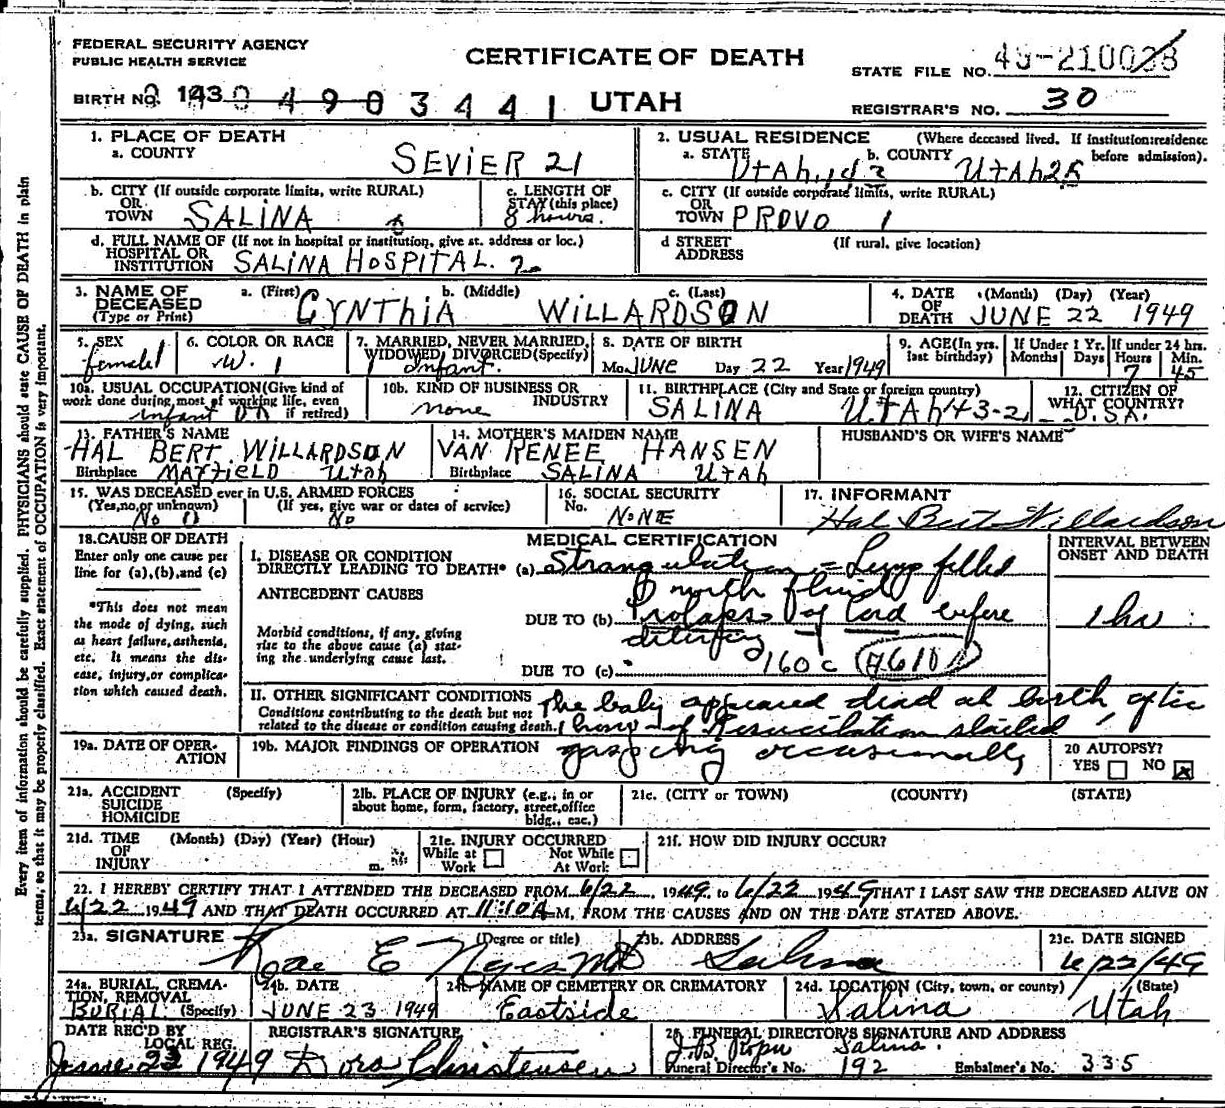 FEDERAL SECURITY AGENCY
PUBLIC HEALTH SERVICE
CERTIFICATE OF DEATH
STATE FILE NO. 49-210038
BIRTH NO. 143 0 4 9 0 3 4 4 1 UTAH
REGISTRAR'S NO. 30
1. PLACE OF DEATH
a. COUNTY SEVIER 21
2. USUAL RESIDENCE (Where deceased lived. If institution:residence before admission).
a. STATE UTAh, 143 b. COUNTY UTAh 25
b. CITY (If outside corporate limits, write RURAL)
OR
TOWN SALiNA
c. LENGTH OF
STAY (this place)
8 hours.
c. CITY (If outside corporate limits, write RURAL)
OR
TOWN PROVO 1
d. FULL NAME OF (If not in hospital or institution, give st. address or loc.)
HOSPITAL OR
INSTITUTION SALiNA HOSPITAL. 2
d STREET
ADDRESS
(If rural, give location)
3. NAME OF
DECEASED
(Type or Print)
a. (First) CYNThiA b. (Middle) c. (Last) WILLARDSON
4. DATE
OF
DEATH
(Month) (Day) (Year)
JUNE 22 1949
5. SEX
female 1
6. COLOR OR RACE
W. 1
7. MARRIED, NEVER MARRIED,
WIDOWED, DIVORCED(Specify)
Infant.
8. DATE OF BIRTH
Mo. JUNE Day 22 Year 1949
9. AGE(In yrs.
last birthday)
If Under 1 Yr.
Months Days
If under 24 hrs.
Hours Min.
7 45
10a. USUAL OCCUPATION(Give kind of
work done during most of working life, even
if retired)
infant
10b. KIND OF BUSINESS OR
INDUSTRY
none
11. BIRTHPLACE (City and State or foreign country)
SALINA UTAh 43-2
12. CITIZEN OF
WHAT COUNTRY?
U.S.A.
13. FATHER'S NAME
HAL BERT WILLARDSON
Birthplace MAYFIELD Utah
14. MOTHER'S MAIDEN NAME
VAN RENEE HANSEN
Birthplace SALINA UTAh
HUSBAND'S OR WIFE'S NAME
15. WAS DECEASED ever in U.S. ARMED FORCES
(Yes,no,or unknown) (If yes, give war or dates of service)
No 0 No
16. SOCIAL SECURITY
No. NONE
17. INFORMANT
Hal Bert Willardson
18.CAUSE OF DEATH
Enter only one cause per
line for (a),(b),and (c)
*This does not mean
the mode of dying, such
as heart failure, asthenia,
etc. It means the dis-
ease, injury, or complica-
tion which caused death.
MEDICAL CERTIFICATION
INTERVAL BETWEEN
ONSET AND DEATH
I. DISEASE OR CONDITION
DIRECTLY LEADING TO DEATH* (a) Strangulation = Lung filled
with fluid
ANTECEDENT CAUSES
DUE TO (b) Prolapse of Cord before
1 hr
Morbid conditions, if any, giving
rise to the above cause (a) stat-
ing the underlying cause last.
DUE TO (c)
160c
II. OTHER SIGNIFICANT CONDITIONS
Conditions contributing to the death but not
related to the disease or condition causing death.
The baby appeared dead at birth after
1 hour of Resucitation started
gasping occasionally
19a. DATE OF OPER-
ATION
19b. MAJOR FINDINGS OF OPERATION
20 AUTOPSY?
YES NO X
21a. ACCIDENT (Specify)
SUICIDE
HOMICIDE
21b. PLACE OF INJURY (e.g., in or
about home, form, factory, street,office
bldg., eac.)
21c. (CITY or TOWN) (COUNTY) (STATE)
21d. TIME (Month) (Day) (Year) (Hour)
OF
INJURY m.
21e. INJURY OCCURRED
While at Work
Not While At Work
21f. HOW DID INJURY OCCUR?
22. I HEREBY CERTIFY THAT I ATTENDED THE DECEASED FROM 6/22, 1949, to 6/22 1949 THAT I LAST SAW THE DECEASED ALIVE ON
6/22 1949 AND THAT DEATH OCCURRED AT 11:10A M, FROM THE CAUSES AND ON THE DATE STATED ABOVE.
23a. SIGNATURE (Degree or title)
Rae E Noyes MD
23b. ADDRESS
Salina
23c. DATE SIGNED
6/22/49
24a. BURIAL, CREMA-
TION, REMOVAL
(Specify) BURIAL
24b. DATE
JUNE 23 1949
24c. NAME OF CEMETERY OR CREMATORY
Eastside
24d. LOCATION (City, town, or county) (State)
Salina Utah
DATE REC'D BY
LOCAL REG.
June 23 1949
REGISTRAR'S SIGNATURE
Dora Christensen
25. FUNERAL DIRECTOR'S SIGNATURE AND ADDRESS
J.B. Salina.
Funeral Director's No. 192 Embalmer's No. 335
Every item of information should be carefully supplied. PHYSICIANS should state CAUSE OF DEATH in plain
terms, so that it may be properly classified. Exact statement of OCCUPATION is very important.